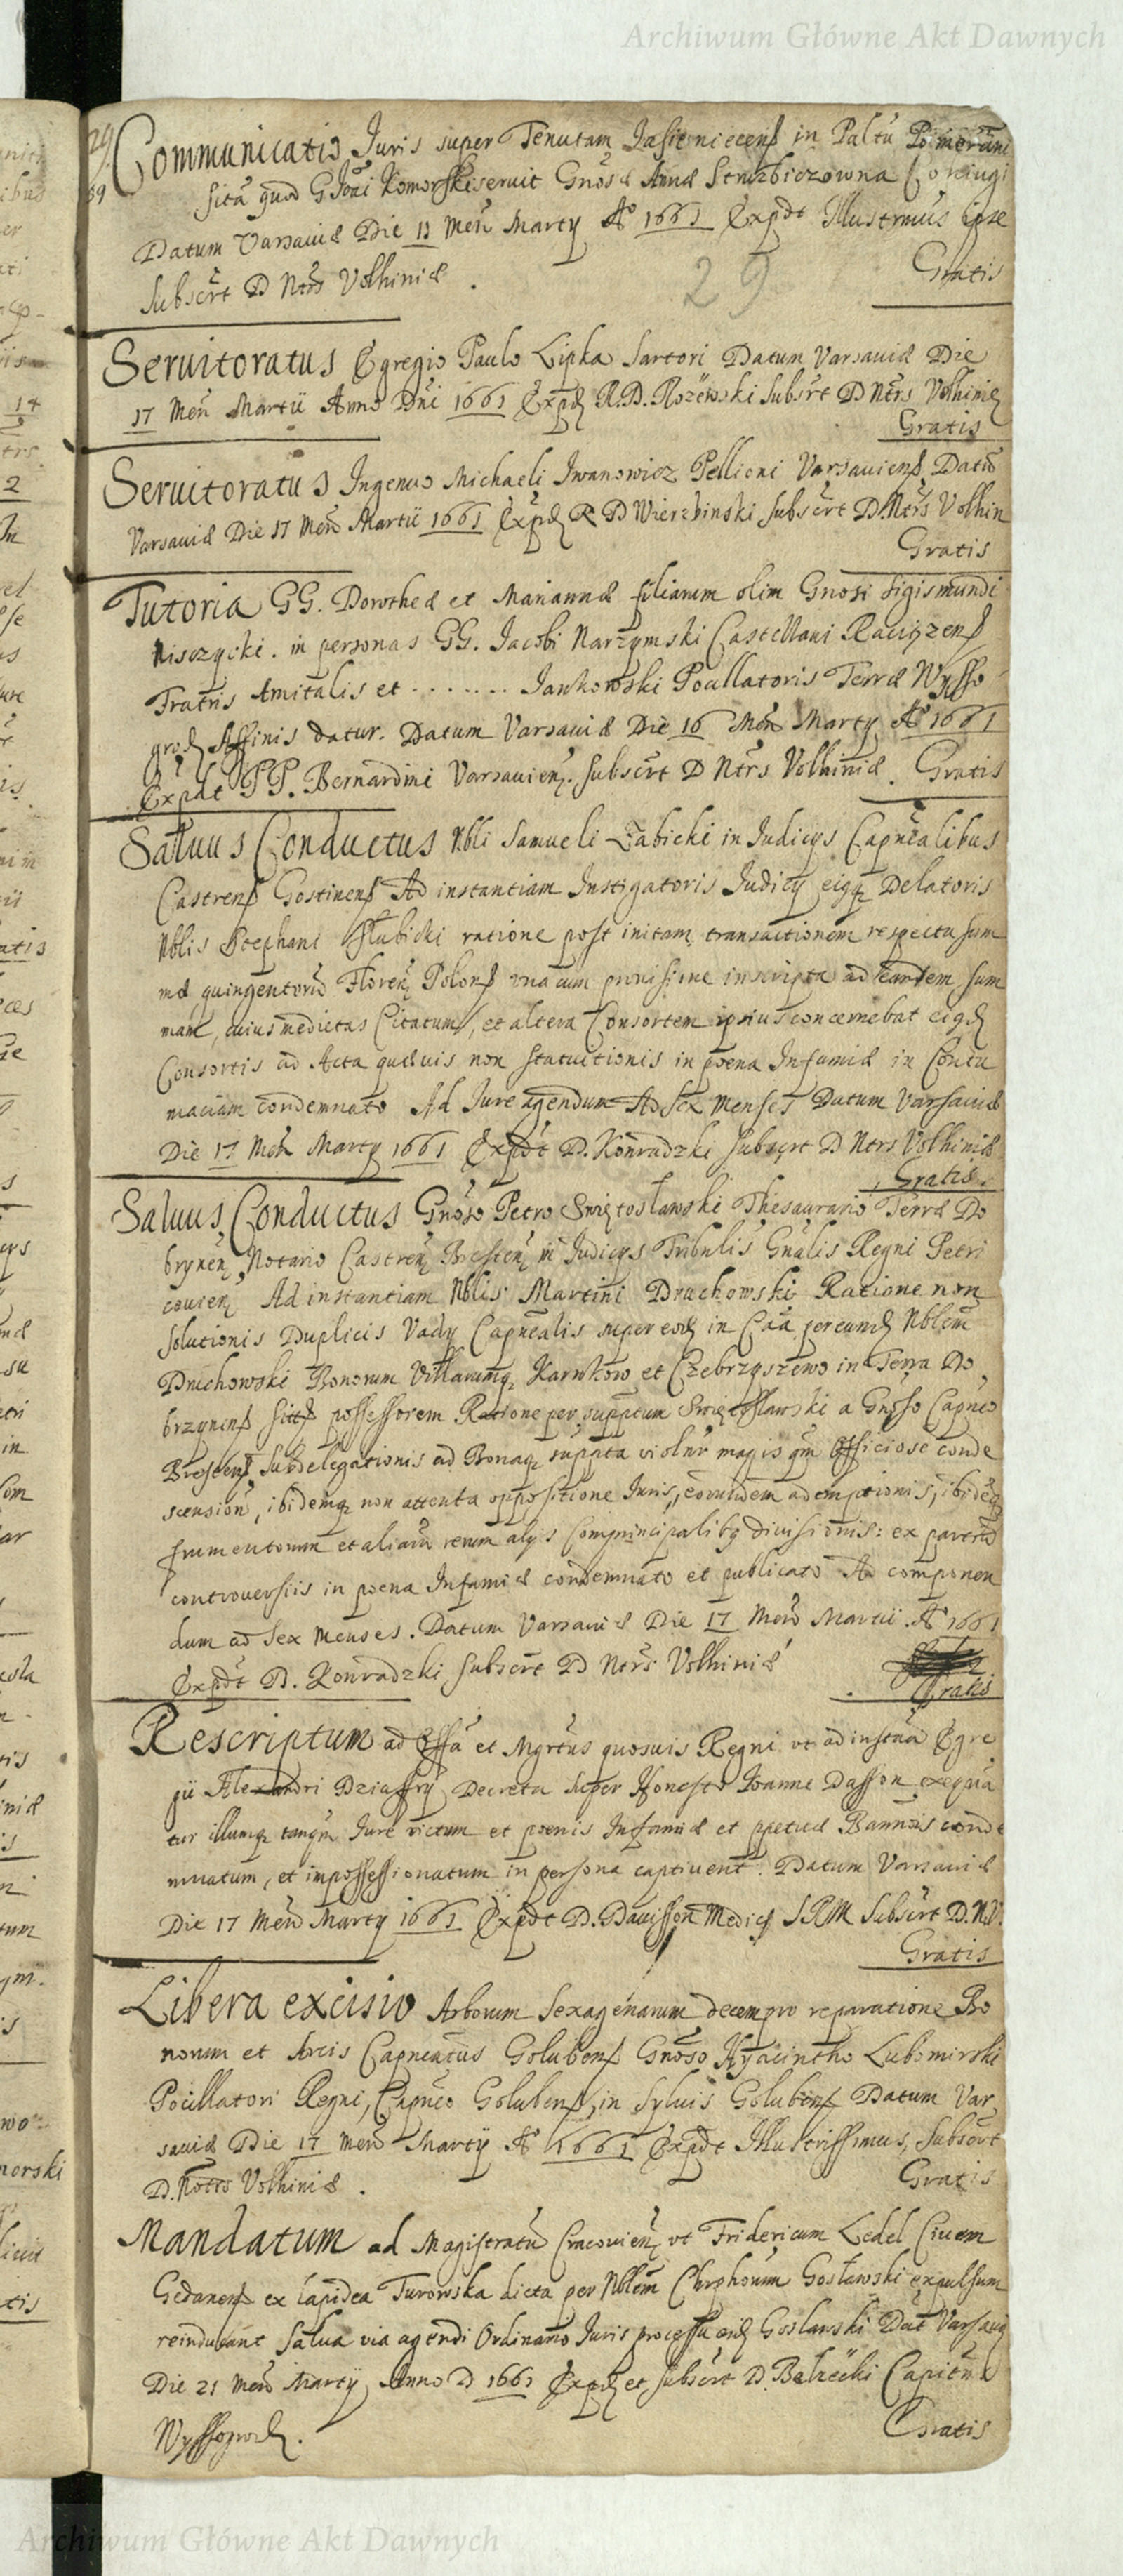 Archiwum Główne Akt Dawnych
29
Communicatio Juris super Tenutam Jasieniecens in Paltu Pomerani
sita quod G Joãi Komorski seruit Gnosæ Annæ Strubiczowna Coniugi
Datum Varsauiæ Die 11 Men Marty Aº 1661 Expdt Illustrmus ipse
Subscrt D Ntrs Volhiniæ . Gratis
29
Seruitoratus Egregio Paulo Lipka Sartori Datum Varsauiæ Die
17 Men Martii Anno Dni 1661 Expd R.D. Subsrt D Ntrs Volhiniæ
Gratis
Seruitoratus Ingenuo Michaeli Iwanowicz Pellioni Varsauiens Datũ
Varsauiæ Die 17 Men Martii 1661 Expd R D Wierzbinski Subscrt D. Ntrs Volhin
Gratis
Tutoria GG. Dorotheæ et Mariannæ filiarum olim Gnosi Sigismundi
Nisczycki . in personas GG. Jacobi Narzymski Castellani Raciązens
Fratris Amitalis et . . . . . . . Jankowski Pocillatoris Terræ Wysso
grod Affinis datur. Datum Varsauiæ Die 16 Men Marty Aº 1661
Expdt PP. Bernardini Varsauien. Subscrt D Ntrs Volhiniæ . Gratis
Saluus Conductus Nbli Samueli Łabicki in Judicys Capnealibus
Castrens Gostinens Ad instantiam Instigatoris Judicy eiqq Delatoris
Nblis Stephani Słubicki ratione post initam transactionem respectu sum
mæ quingentorũ Floren Polons vna cum prouisione inscripta ad eandem sum
mam, cuius medietas Citatum, et altera Consortem ipsius concernebat eigd
Consortis ad Acta quæuis non statuitionis in pœna Infamiæ in Contu
maciam condemnato Ad Jure agendum Ad Sex Menses Datum Varsauiæ
Die 17 Men Marty 1661 Expdt D. Konradzki Subscrt D Ntrs Volhiniæ
Gratis.
Saluus Conductus Gnoso Petro Swiętosławski Thesaurario Terræ Do
brynen, Notario Castren Bresten in Judicys Tribulis Gnalis Regni Petri
couien Ad instantiam Nblis Martini Druchowski Ratione non
solutionis Duplicis Vady Capnealis super eod in Caa per eund Nblem
Druchowski Bonorum Villarumq Karnkowo et Czebrzyszewo in Terra Do
brzynens possessorem Ratione per supptum Swiętosławski a Gnoso Capneo
Brestens Subdelegationis ad Bonaq suppta violnr magis qm Officiose conde
scension, ibidemq non attenta oppositione Juris, eorundem ademptionis, ibidẽq
frumentorum et aliarũ rerum alys Comprincipalibq diuisionis: ex partiũ
controuersiis in pœna Infamiæ condemnato et publicato Ad componen
dum ad Sex Menses. Datum Varsauiæ Die 17 Men Martii Aº 1661
Expdt D. Konradzki Subscrt D Ntrs Volhiniæ
Gratis
Rescriptum ad Offa et Mgrtus quosuis Regni vt ad instna Egre
gii Alexandri Dziaffry Decreta super Honesto Joanne Dasson exequa
tur illumq tanqm Jure victum et pœnis Infamiæ et ppetuæ Bannois conde
mnatum, et impossessionatum in persona captiuent. Datum Varsauiæ
Die 17 Men Marty 1661 Expdt D. Dauisson Medicq SRM Subscrt D. N.V.
Gratis
Libera excisio Arborum Sexagenarum decem pro reparatione Bo
norum et Arcis Capneatus Golubens Gnoso Hyacintho Lubomirski
Pocillatori Regni, Capneo Golubens, in Syluis Golubens Datum Var
sauiæ Die 17 Men Martÿ Aº 1661 Expdt Illustrissimus, Subscrt
D. Notrs Volhiniæ . Gratis
Mandatum ad Magistratũ Cracouien vt Fridericum Ledel Ciuem
Gedanens ex lapidea Turowska dicta per Nblem Chrphorum Gosławski expulsum
reinducant Salua via agendi Ordinario Juris processu cũ Goslawski Dat Varsauiæ
Die 21 Men Martÿ Anno D 1661 Expd et Subscrt D. Capitne
Wyssogrod. Gratis
Archiwum Główne Akt Dawnych